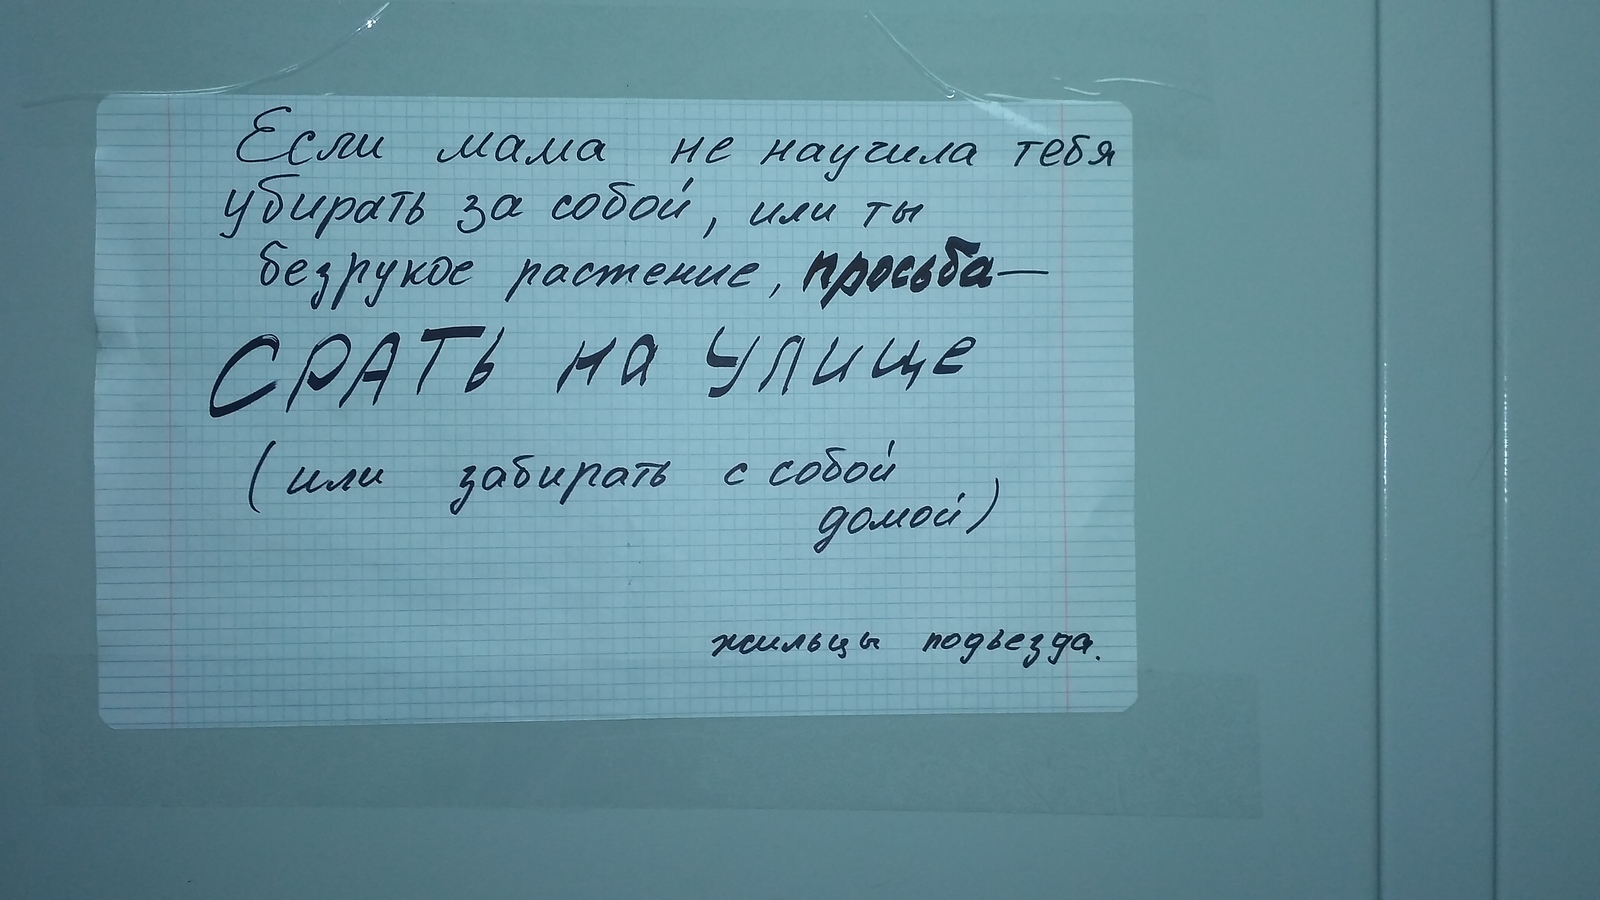 Если мама не научила тебя
убирать за собой, или ты
безрукое растение, просьба —
СРАТЬ на улице
(или забирать с собой
домой)
жильцы подъезда.